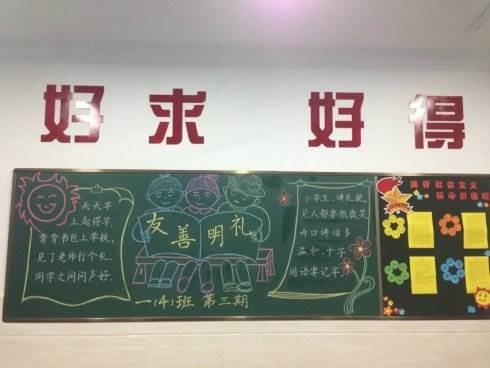 好求 好得
天天早,
上起得早,
背背书包上学校。
见了老师行个礼,
同学之间问声好。
友善明礼
小学生,讲礼貌,
见人都要微微笑
开口讲话多
温和,十字
用语要记牢。
一(4)班 第三期
践行社会主义
核心价值观